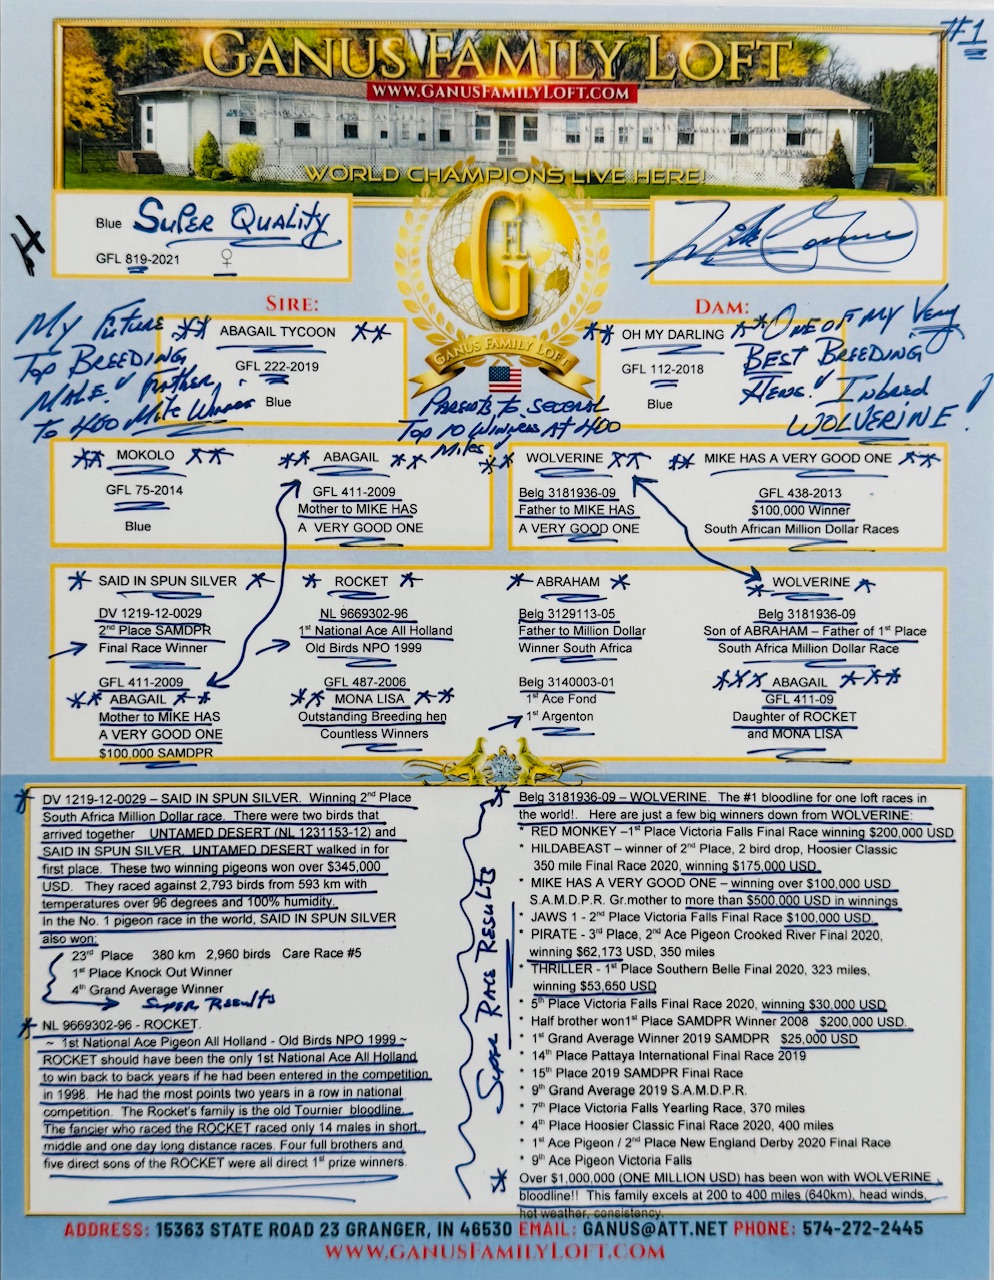 #1
GANUS FAMILY LOFT
WWW.GANUSFAMILYLOFT.COM
WORLD CHAMPIONS LIVE HERE!
H
Blue SUPER QUALITY
GFL 819-2021 ♀
G F L
GANUS FAMILY LOFT
SIRE:
** ABAGAIL TYCOON **
GFL 222-2019
Blue
My Future
Top BREEDING
MALE! FATHER
To 400 Mile Winner
DAM:
** OH MY DARLING **
GFL 112-2018
Blue
ONE OF MY Very
BEST BREEDING
Hens! Inbred
WOLVERINE!
PARENTS to SEVERAL
Top 10 WINNERS AT 400
Miles!
** MOKOLO **
GFL 75-2014
Blue
** ABAGAIL **
GFL 411-2009
Mother to MIKE HAS
A VERY GOOD ONE
** WOLVERINE **
Belg 3181936-09
Father to MIKE HAS
A VERY GOOD ONE
** MIKE HAS A VERY GOOD ONE **
GFL 438-2013
$100,000 Winner
South African Million Dollar Races
* SAID IN SPUN SILVER *
DV 1219-12-0029
2nd Place SAMDPR
Final Race Winner
GFL 411-2009
** ABAGAIL **
Mother to MIKE HAS
A VERY GOOD ONE
$100,000 SAMDPR
* ROCKET *
NL 9669302-96
1st National Ace All Holland
Old Birds NPO 1999
GFL 487-2006
** MONA LISA **
Outstanding Breeding hen
Countless Winners
* ABRAHAM *
Belg 3129113-05
Father to Million Dollar
Winner South Africa
Belg 3140003-01
1st Ace Fond
1st Argenton
* WOLVERINE *
Belg 3181936-09
Son of ABRAHAM – Father of 1st Place
South Africa Million Dollar Race
*** ABAGAIL ***
GFL 411-09
Daughter of ROCKET
and MONA LISA
* DV 1219-12-0029 – SAID IN SPUN SILVER. Winning 2nd Place
South Africa Million Dollar race. There were two birds that
arrived together UNTAMED DESERT (NL 1231153-12) and
SAID IN SPUN SILVER. UNTAMED DESERT walked in for
first place. These two winning pigeons won over $345,000
USD. They raced against 2,793 birds from 593 km with
temperatures over 96 degrees and 100% humidity.
In the No. 1 pigeon race in the world, SAID IN SPUN SILVER
also won:
23rd Place 380 km 2,960 birds Care Race #5
1st Place Knock Out Winner
4th Grand Average Winner
SUPER RESULTS
* NL 9669302-96 - ROCKET.
~ 1st National Ace Pigeon All Holland - Old Birds NPO 1999 ~
ROCKET should have been the only 1st National Ace All Holland
to win back to back years if he had been entered in the competition
in 1998. He had the most points two years in a row in national
competition. The Rocket's family is the old Tournier bloodline.
The fancier who raced the ROCKET raced only 14 males in short,
middle and one day long distance races. Four full brothers and
five direct sons of the ROCKET were all direct 1st prize winners.
SUPER RACE RESULTS
* Belg 3181936-09 – WOLVERINE. The #1 bloodline for one loft races in
the world!. Here are just a few big winners down from WOLVERINE:
* RED MONKEY –1st Place Victoria Falls Final Race winning $200,000 USD
* HILDABEAST – winner of 2nd Place, 2 bird drop, Hoosier Classic
350 mile Final Race 2020, winning $175,000 USD.
* MIKE HAS A VERY GOOD ONE – winning over $100,000 USD
S.A.M.D.P.R. Gr.mother to more than $500,000 USD in winnings
* JAWS 1 - 2nd Place Victoria Falls Final Race $100,000 USD.
* PIRATE - 3rd Place, 2nd Ace Pigeon Crooked River Final 2020,
winning $62,173 USD, 350 miles
* THRILLER - 1st Place Southern Belle Final 2020, 323 miles,
winning $53,650 USD
* 5th Place Victoria Falls Final Race 2020, winning $30,000 USD
* Half brother won1st Place SAMDPR Winner 2008 $200,000 USD.
* 1st Grand Average Winner 2019 SAMDPR $25,000 USD
* 14th Place Pattaya International Final Race 2019
* 15th Place 2019 SAMDPR Final Race
* 9th Grand Average 2019 S.A.M.D.P.R.
* 7th Place Victoria Falls Yearling Race, 370 miles
* 4th Place Hoosier Classic Final Race 2020, 400 miles
* 1st Ace Pigeon / 2nd Place New England Derby 2020 Final Race
* 9th Ace Pigeon Victoria Falls
* Over $1,000,000 (ONE MILLION USD) has been won with WOLVERINE
bloodline!! This family excels at 200 to 400 miles (640km), head winds,
hot weather, consistency.
ADDRESS: 15363 STATE ROAD 23 GRANGER, IN 46530 EMAIL: GANUS@ATT.NET PHONE: 574-272-2445
WWW.GANUSFAMILYLOFT.COM